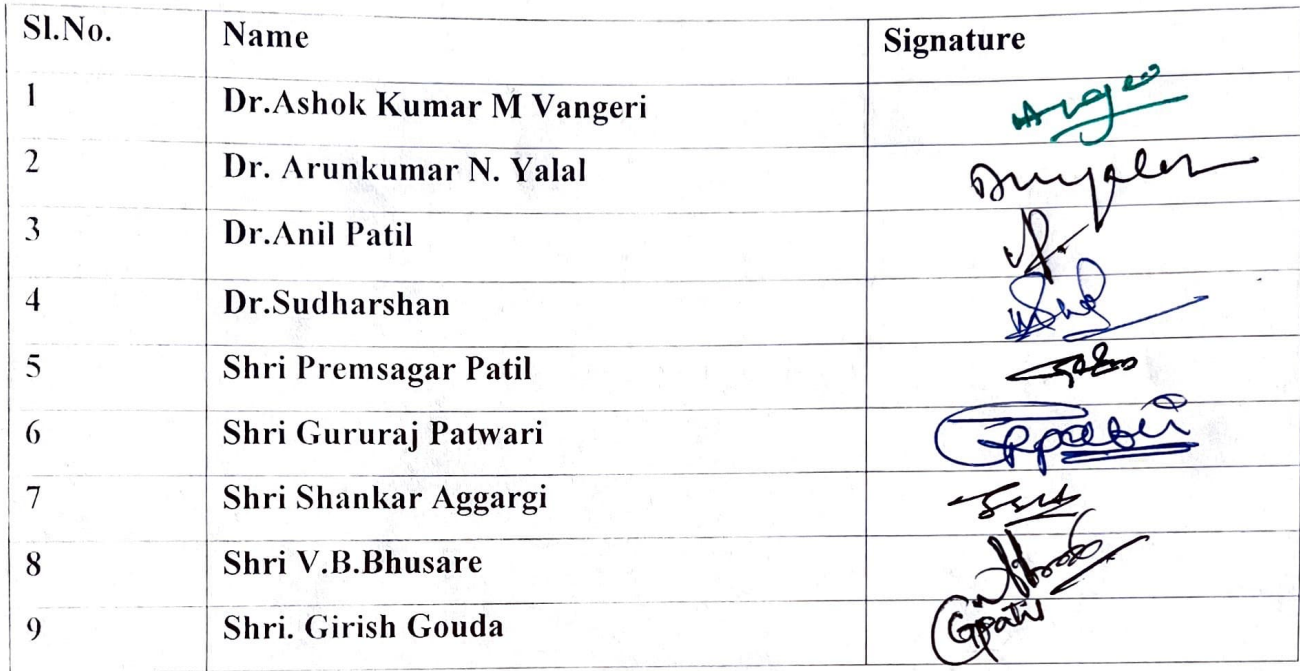 Sl.No. Name Signature
1 Dr.Ashok Kumar M Vangeri
2 Dr. Arunkumar N. Yalal
3 Dr.Anil Patil
4 Dr.Sudharshan
5 Shri Premsagar Patil
6 Shri Gururaj Patwari
7 Shri Shankar Aggargi
8 Shri V.B.Bhusare
9 Shri. Girish Gouda Gpatil